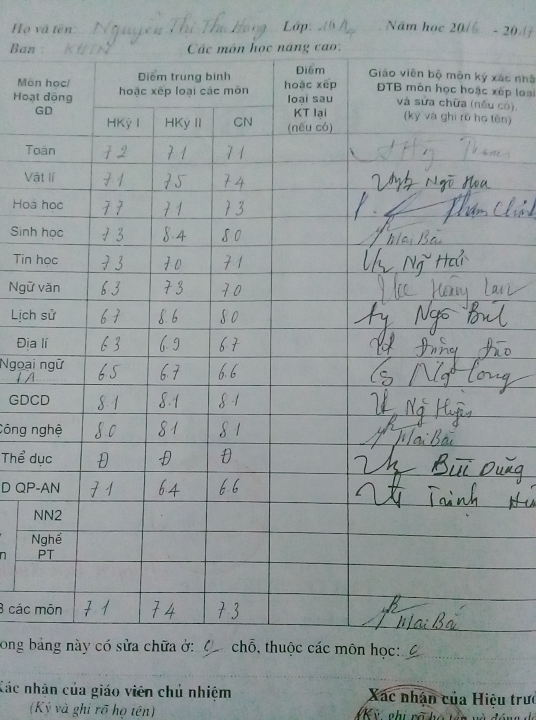 Họ và tên: Nguyễn Thị Thu Hong Lớp: Năm học 2016 - 2017
Ban: KHTN Các môn học nâng cao:
Môn học/ Hoạt động GD Điểm trung bình hoặc xếp loại các môn Điểm hoặc xếp loại sau KT lại (nếu có) Giáo viên bộ môn ký xác nhậ ĐTB môn học hoặc xếp loại và sửa chữa (nếu có), (ký và ghi rõ họ tên)
HKỳ I HKỳ II CN
Toán 7.2 7.1 7.1
Vật lí 7.1 7.5 7.4 Ngô Hoa
Hoá học 7.7 7.1 7.3 Phạm
Sinh học 7.3 8.4 8.0 Mai Bắc
Tin học 7.3 7.0 7.1 Ng Hải
Ngữ văn 6.3 7.3 7.0 Hoàng Lan
Lịch sử 6.7 8.6 8.0 Ngô Bút
Địa lí 6.3 6.9 6.7 Đào
Ngoại ngữ 6.5 6.7 6.6 Ngô Long
GDCD 8.1 8.1 8.1 Ng Huyền
Công nghệ 8.0 8.1 8.1 Mai Bắc
Thể dục Đ Đ Đ Bùi Dũng
D QP-AN 7.1 6.4 6.6 Trịnh
NN2
Nghề PT
n
B các môn 7.1 7.4 7.3 Mai Bắc
ong bảng này có sửa chữa ở: 0 chỗ, thuộc các môn học:
Xác nhận của giáo viên chủ nhiệm Xác nhận của Hiệu trưở
(Ký và ghi rõ họ tên) (Ký, ghi rõ họ tên và đóng d